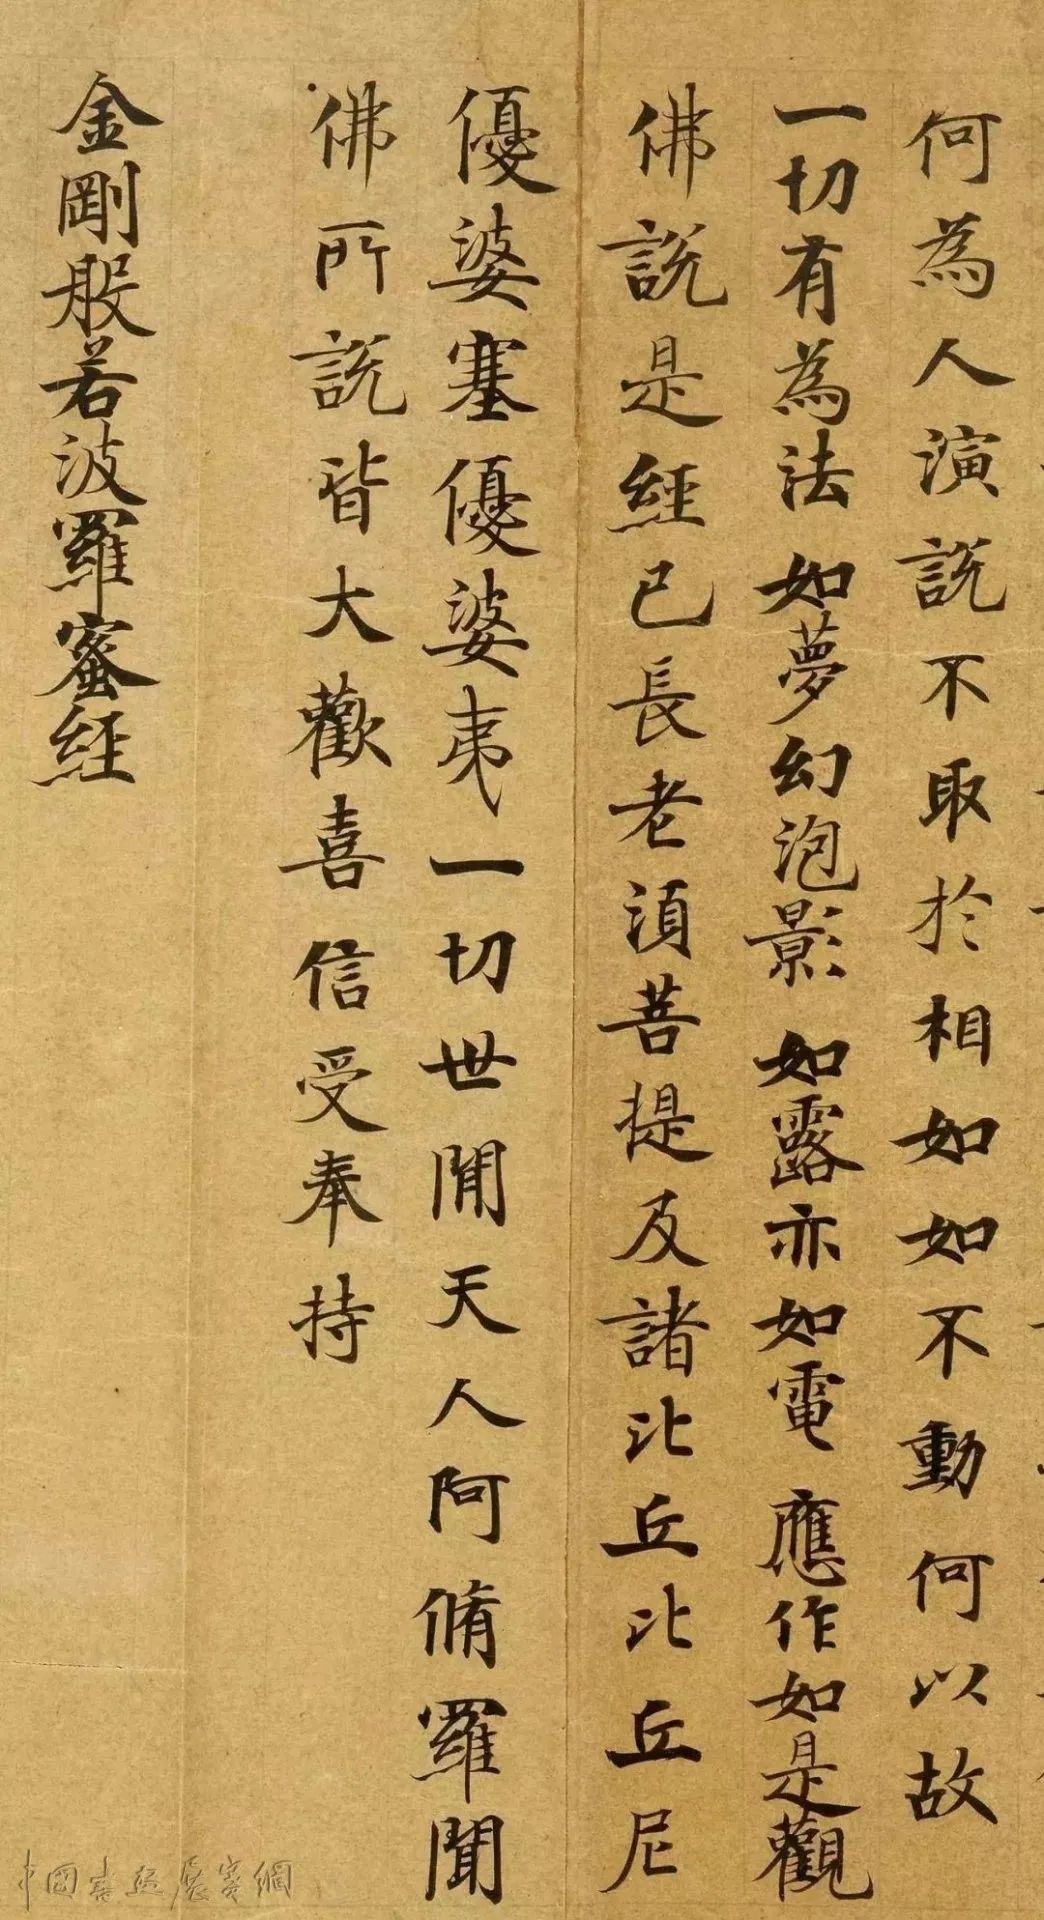 何為人演說不取於相如如不動何以故
一切有為法如夢幻泡影如露亦如電應作如是觀
佛說是經已長老須菩提及諸比丘比丘尼
優婆塞優婆夷一切世間天人阿脩羅聞
佛所說皆大歡喜信受奉持
金剛般若波羅蜜經
中國書法展賽網